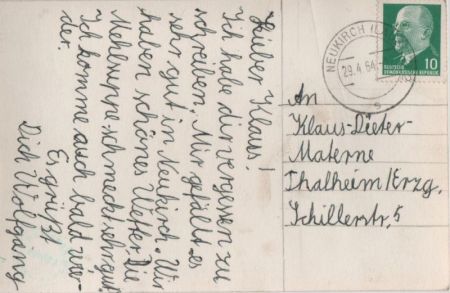 Lieber Klaus!
Ich habe dir vergesen zu
schreiben. Mir gefällt es
sehr gut in Neukirch. Wir
haben schönes Wetter. Die
Mehlsuppe schmeckt sehr gut.
Ich komme auch bald wie-
der.
Es grüßt
Dich Wolfgang
NEUKIRCH (L
29.4.64
s
DEUTSCHE
DEMOKRATISCHE REPUBLIK
10
An
Klaus-Dieter-
Materne
Thalheim/Erzg.
Schillerstr. 5